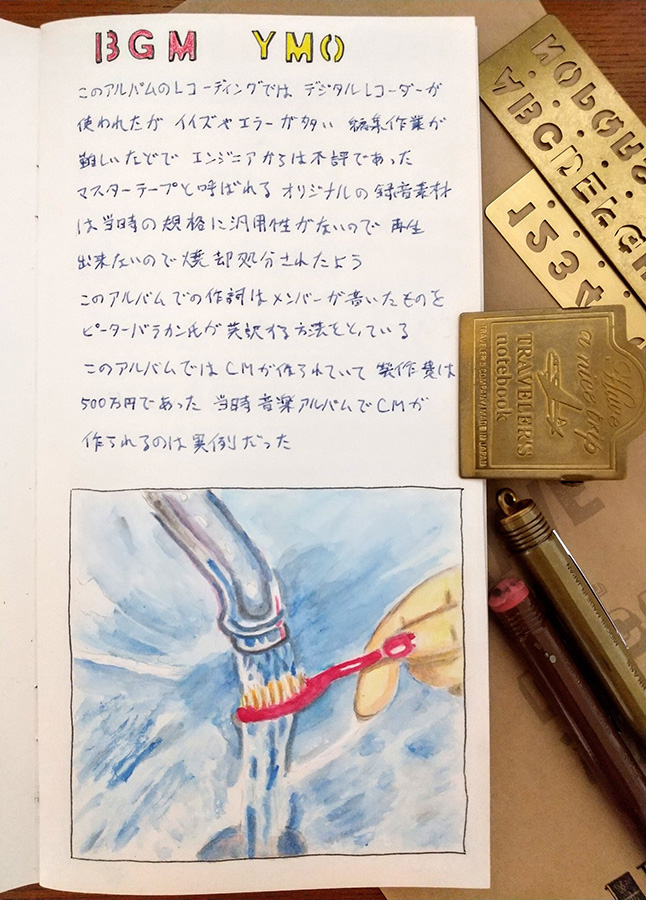 BGM YMO
このアルバムのレコーディングでは デジタルレコーダーが
使われたが ノイズやエラーが多い 編集作業が
難しいなどで エンジニアからは不評であった
マスターテープと呼ばれる オリジナルの録音素材
は当時の規格に汎用性がないので 再生
出来ないので焼却処分されたよう
このアルバムでの作詞はメンバーが書いたものを
ピーターバラカン氏が英訳する方法をとっている
このアルバムではCMが作られていて 製作費は
500万円であった 当時音楽アルバムでCMが
作られるのは異例だった
ABCDEFGH
1234
Have
a nice trip
TRAVELER'S
notebook
TRAVELER'S COMPANY MADE IN JAPAN